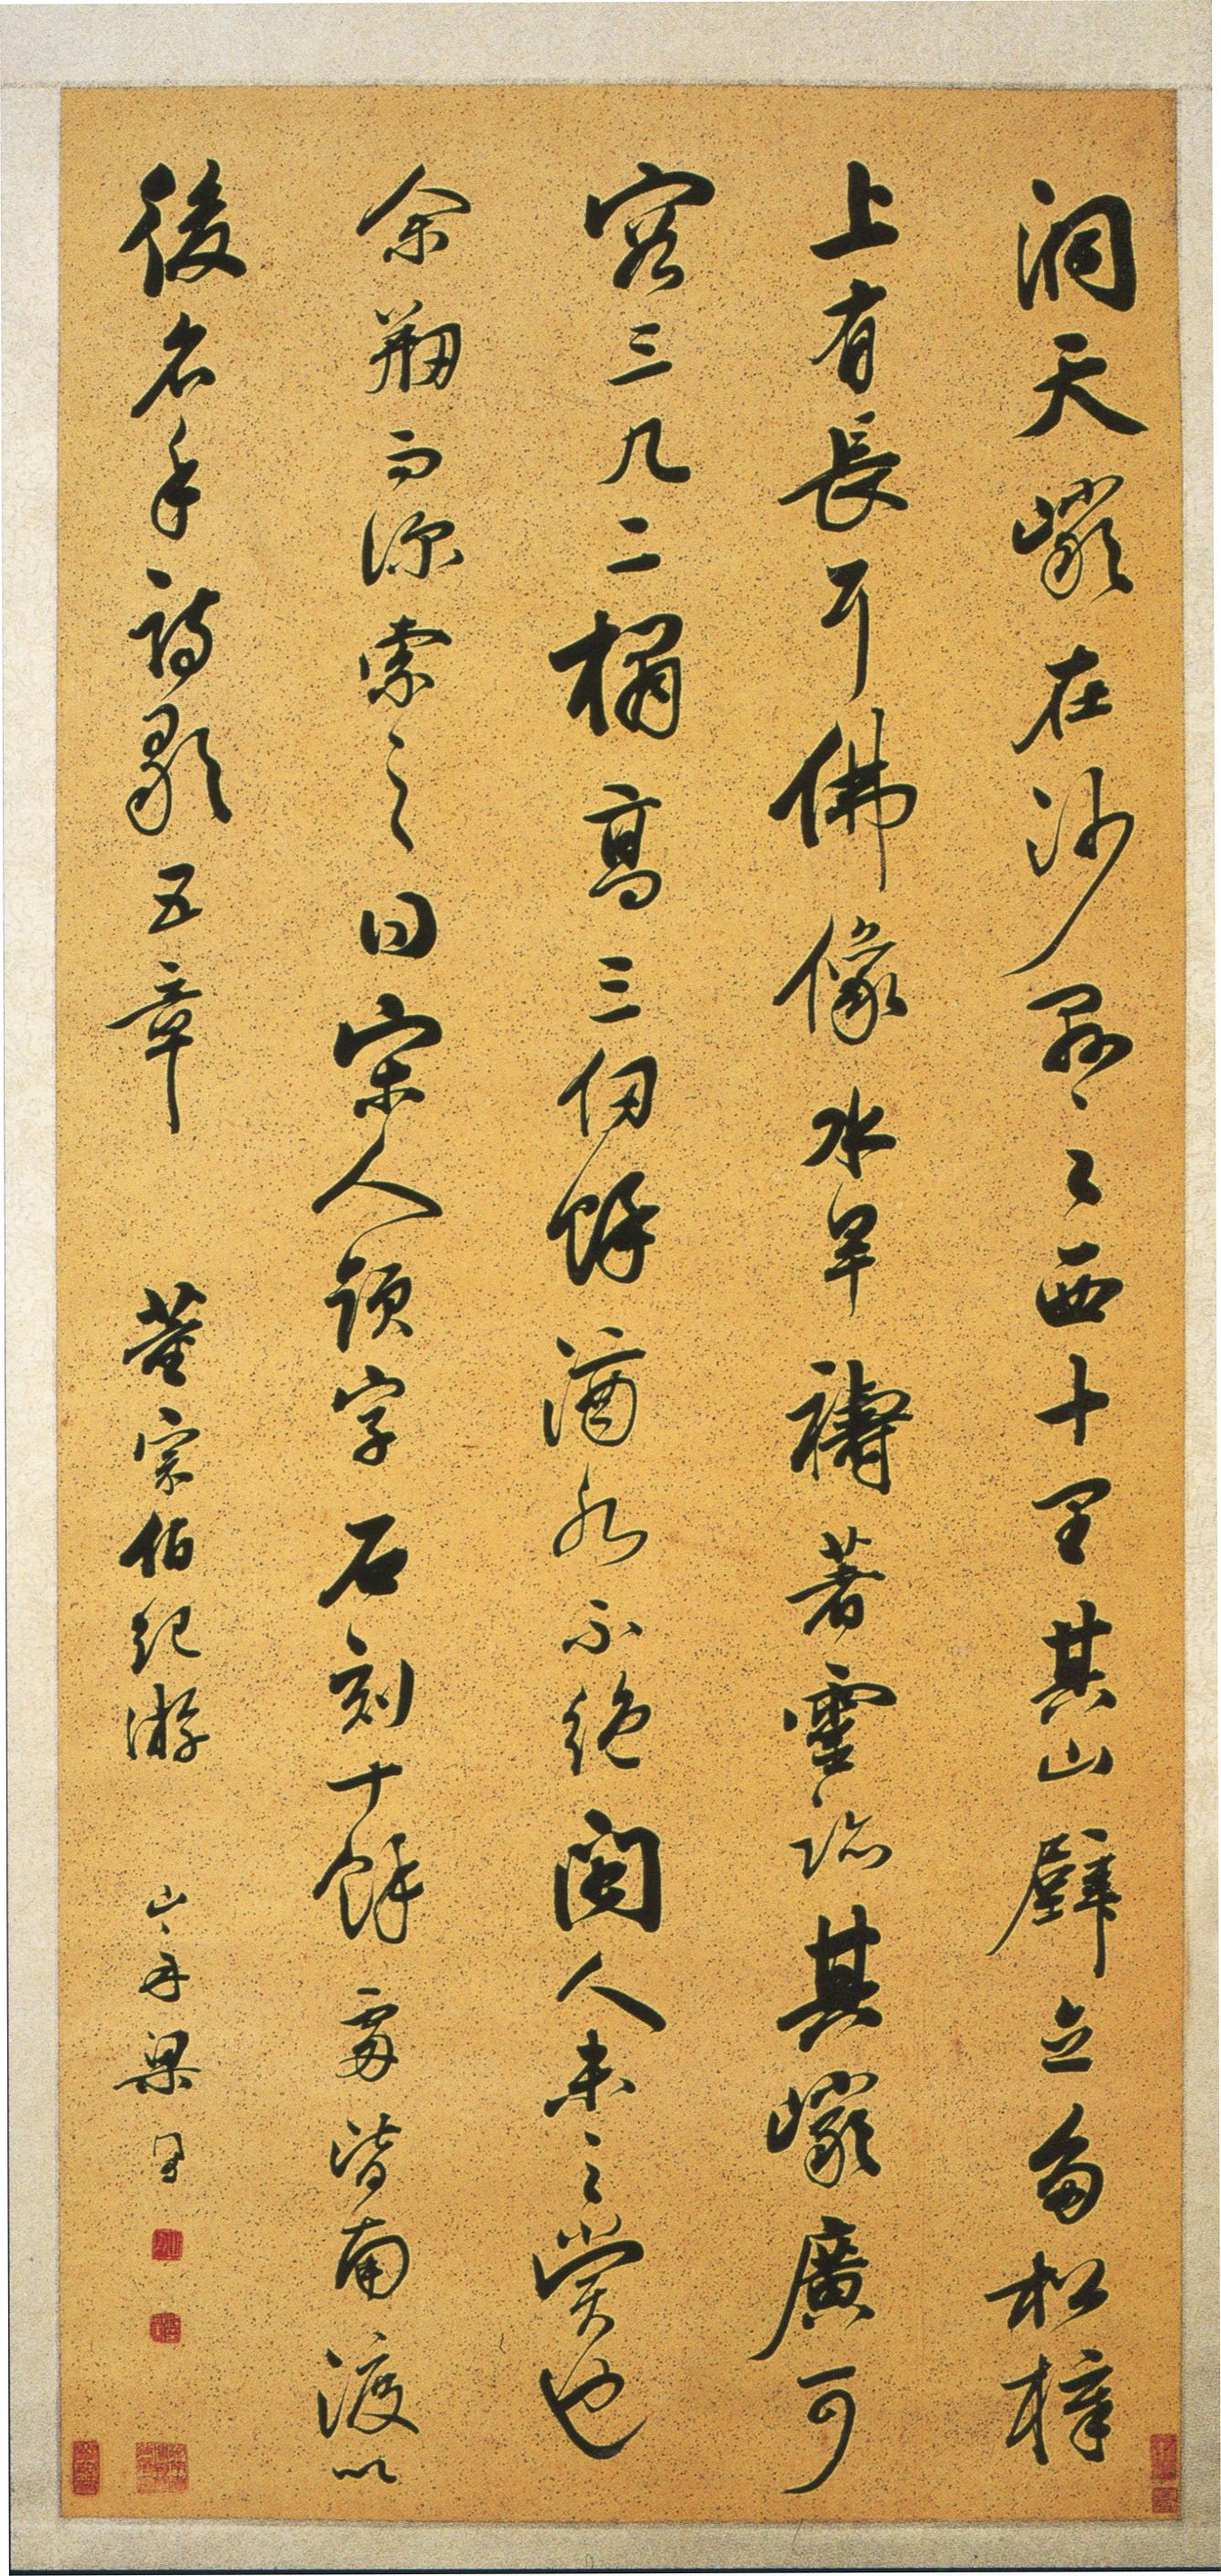 洞天巖在沙縣之西十里其山壁立多松樟
上有長耳佛像水旱禱著靈跡其巖廣可
容三几二榻高三仞餘滴水不絕閩人未之賞也
余剏而深索之曰宋人題字石刻十餘處皆南渡以
後名手詩歌五章 董宗伯紀游 山舟梁同書